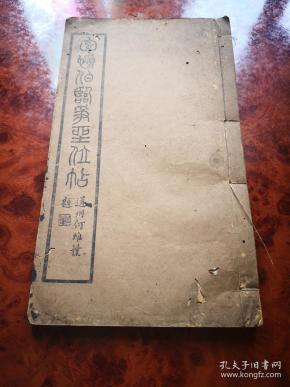 伯臨爭坐位帖
道州何維樸
題
孔夫子旧书网